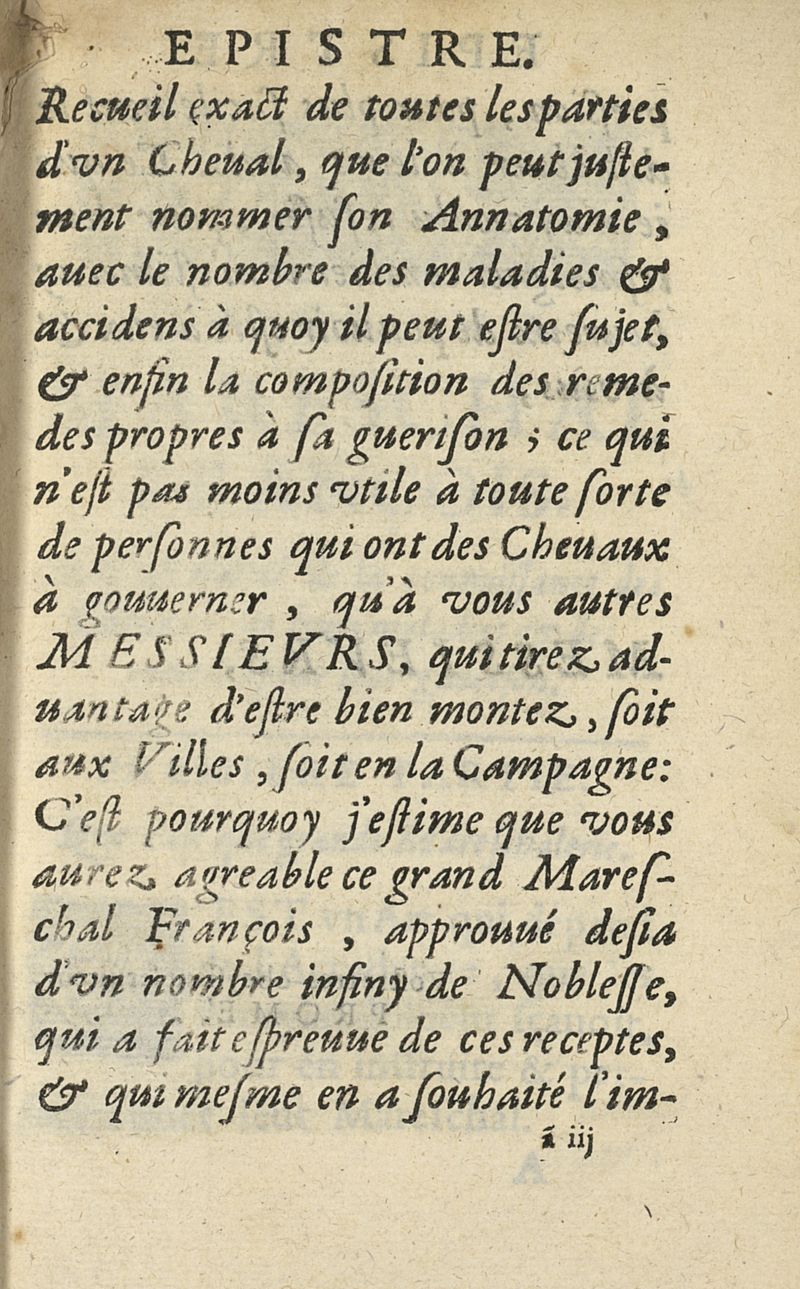 EPISTRE.
Recueil exact de toutes les parties
d'vn Cheual, que l'on peut juſte-
ment nommer ſon Annatomie,
auec le nombre des maladies &
accidens à quoy il peut eſtre ſujet,
& enfin la compoſition des reme-
des propres à ſa gueriſon ; ce qui
n'eſt pas moins vtile à toute ſorte
de perſonnes qui ont des Cheuaux
à gouuerner, qu'à vous autres
MESSIEVRS, qui tirez ad-
uantage d'eſtre bien montez, ſoit
aux Villes, ſoit en la Campagne:
C'eſt pourquoy j'eſtime que vous
aurez agreable ce grand Mareſ-
chal François, approuué deſia
d'vn nombre infiny de Nobleſſe,
qui a fait eſpreuue de ces receptes,
& qui meſme en a ſouhaité l'im-
ã iij